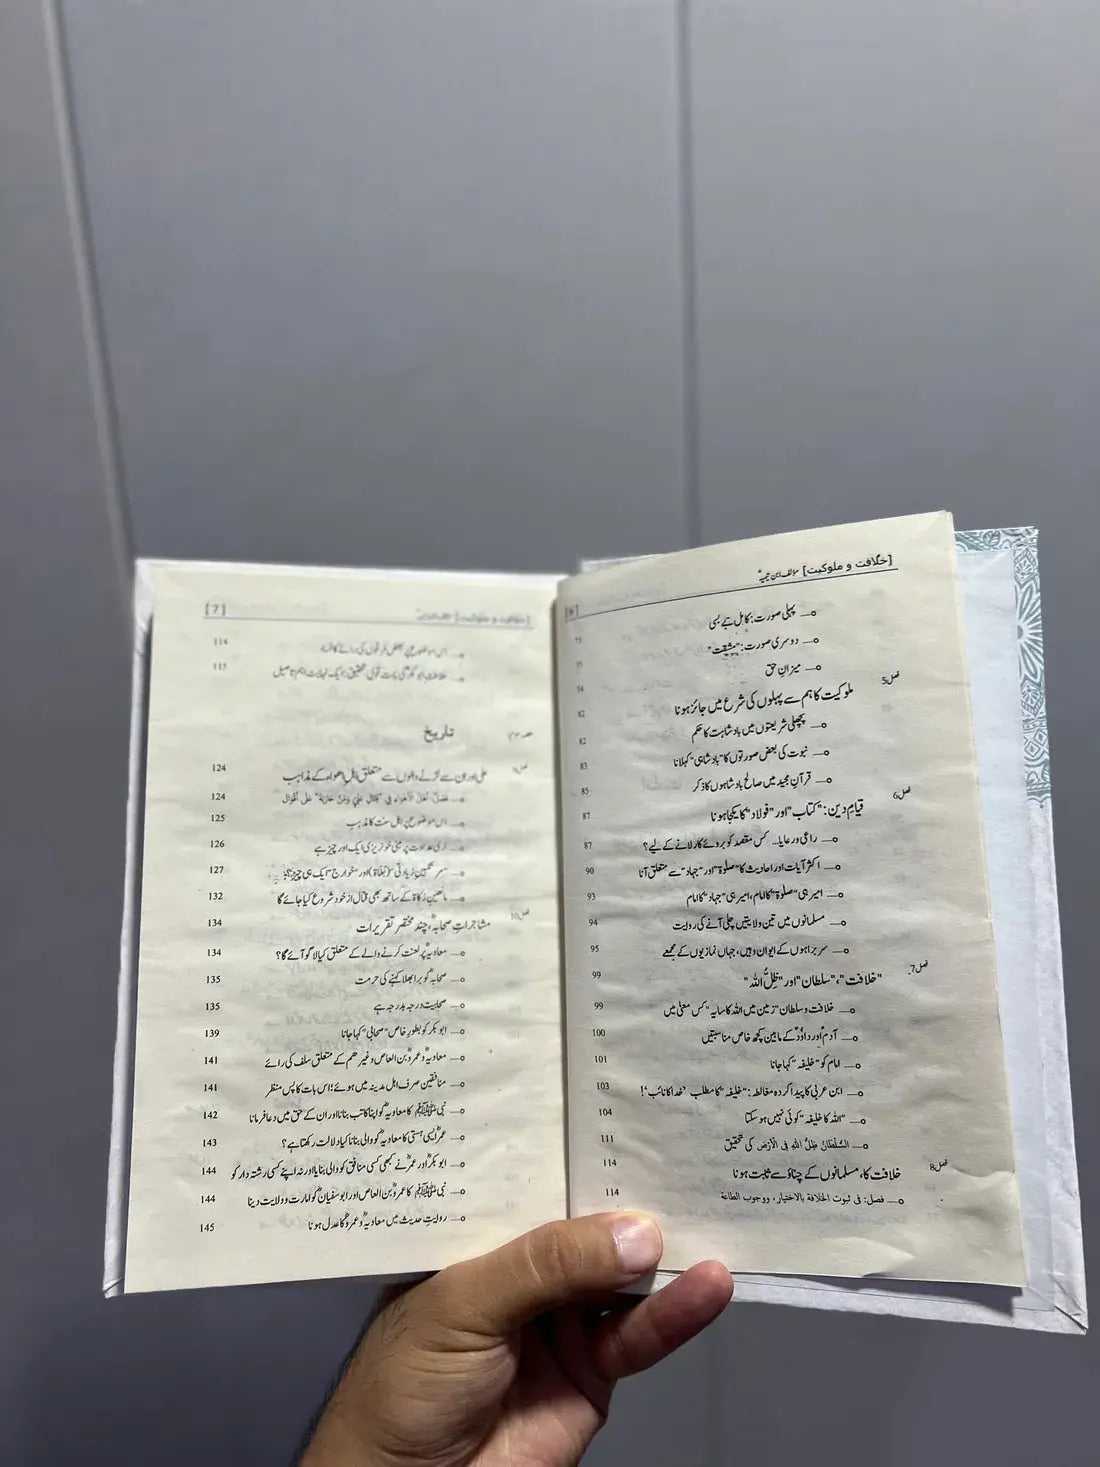 [خلافت و ملوکیت] مؤلف ابن تیمیہؒ
پہلی صورت: کامل بے بسی
دوسری صورت: "مشقت"
میزانِ حق
فصل5
ملوکیت کا ہم سے پہلوں کی شرع میں جائز ہونا 82
پچھلی شریعتوں میں بادشاہت کا حکم 82
نبوت کی بعض صورتوں کا "بادشاہی" کہلانا 83
قرآنِ مجید میں صالح بادشاہوں کا ذکر 85
فصل6
قیامِ دین: "کتاب" اور "فولاد" کا یکجا ہونا 87
راعی و رعایا... کس مقصد کو بروئے کار لانے کے لیے؟ 87
اکثر آیات اور احادیث کا "صلوٰۃ" اور "جہاد" سے متعلق آنا 90
امیر ہی "صلوٰۃ" کا امام، امیر ہی "جہاد" کا امام 93
مسلمانوں میں تین ولایتیں چلی آنے کی روایت 94
سربراہوں کے ایوان وہیں، جہاں نمازیوں کے مجمعے 95
فصل7
"خلافت"، "سلطان" اور "ظِلُّ اللہ" 99
خلافت و سلطان "زمین میں اللہ کا سایہ" کس معنی میں 99
آدمؑ اور داؤدؑ کے مابین کچھ خاص مناسبتیں 100
امام کو "خلیفہ" کہا جانا 101
ابن عربی کا پیدا کردہ مغالطہ: "خلیفہ" کا مطلب 'خدا کا نائب'! 103
"اللہ کا خلیفہ" کوئی نہیں ہو سکتا 104
السُّلْطَانُ ظِلُّ اللهِ فِي الْأَرْضِ کی تحقیق 111
فصل8
خلافت کا، مسلمانوں کے چناؤ سے ثابت ہونا 114
فصل: فی ثبوت الخلافة بالاختيار، ووجوب الطاعة 114
[خلافت و ملوکیت] [7]
اس موضوع پر بعض فرقوں کی رائے کا فساد 114
خلافتِ ابوبکرؓ کی بابت قولِ تحقیق؛ ایک نہایت اہم تاصیل 115
تاریخ
علیؓ اور ان سے لڑنے والوں سے متعلق اہلِ اھواء کے مذاہب 124
فصل: أهل الأهواء في "قتال علي ومن حاربه" على أقوال 124
اس موضوع پر اہل سنت کا مذہب 125
نری عداوت پر مبنی خونریزی ایک اور چیز ہے 126
127
مانعینِ زکاۃ کے ساتھ بھی قتال از خود شروع کیا جائے گا 132
فصل10
مشاجراتِ صحابہؓ، چند مختصر تقریرات 134
معاویہؓ پر لعنت کرنے والے کے متعلق کیا لاگو آئے گا؟ 134
صحابہؓ کو برا بھلا کہنے کی حرمت 135
صحابیت درجہ بدرجہ ہے 135
ابوبکرؓ کو بطورِ خاص "صحابی" کہا جانا 139
معاویہؓ و عمروؓ بن العاص وغیرھم کے متعلق سلف کی رائے 141
منافقین صرف اہل مدینہ میں ہوئے؛ اس بات کا پس منظر 141
نبی ﷺ کا معاویہؓ کو اپنا کاتب بنانا اور ان کے حق میں دعا فرمانا 142
عمرؓ ایسی ہستی کا معاویہؓ کو والی بنانا کیا دلالت رکھتا ہے؟ 143
ابوبکرؓ اور عمرؓ نے کبھی کسی منافق کو والی بنایا اور نہ اپنے کسی رشتہ دار کو 144
نبی ﷺ کا عمروؓ بن العاص اور ابوسفیانؓ کو امارت و ولایت دینا 144
روایتِ حدیث میں معاویہؓ و عمروؓ کا عدل ہونا 145